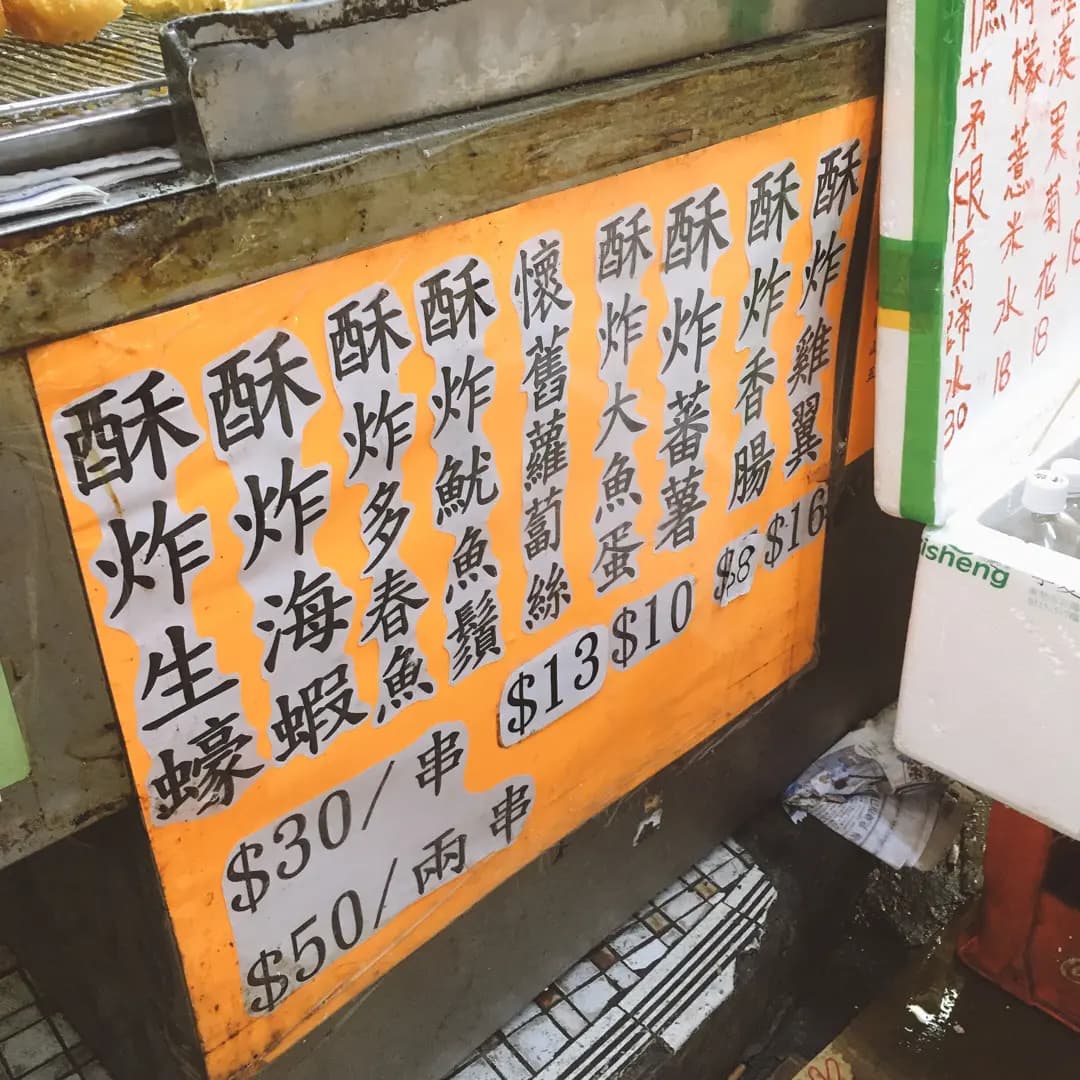 酥炸生蠔
酥炸海蝦
酥炸多春魚
酥炸魷魚鬚
$30/串
$50/兩串
懷舊蘿蔔絲
$13
酥炸大魚蛋
酥炸蕃薯
$10
酥炸香腸
$8
酥炸雞翼
$16
茅根馬蹄水
30
檸檬薏米水
18
羅漢果菊花
18
18
isheng